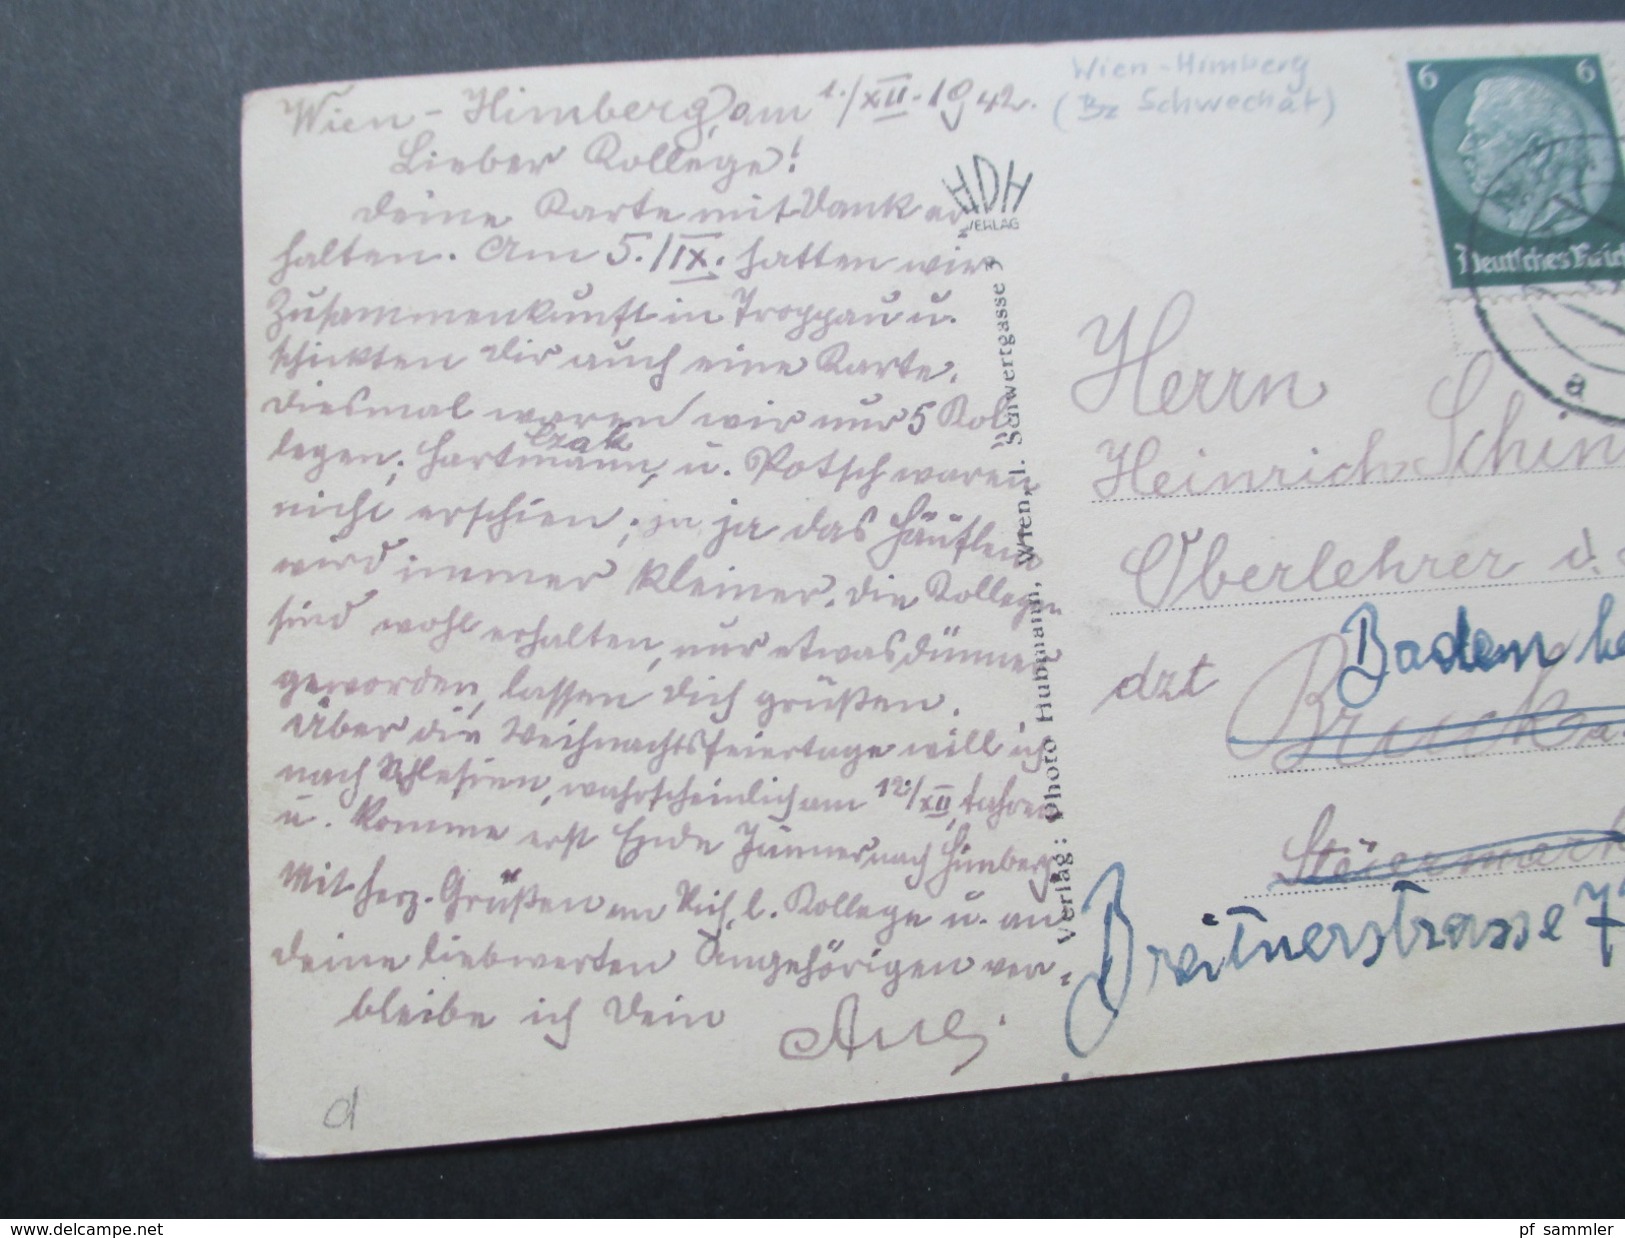 Wien-Himberg, am 1./XII.1942.
Lieber Kollege!
Deine Karte mit Dank er-
halten. Am 5./IX. hatten wir
Zusammenkunft in Troppau u.
schickten Dir auch eine Karte.
Diesmal waren wir nur 5 Kol-
legen, Hartmann, Czak u. Potsch waren
nicht erschien; ja ja das Häuflein
wird immer kleiner. Die Kollegen
sind wohl erhalten, nur etwas dünner
geworden, lassen Dich grüßen.
Über die Weihnachtsfeiertage will ich
nach Schlesien, wahrscheinlich am 12./XII. fahren
u. komme erst Ende Jänner nach Himberg.
Mit herz. Grüßen an Dich, l. Kollege u. an
Deine liebwerten Angehörigen ver-
bleibe ich Dein
d
HDH
VERLAG
Verlag: Photo Hubmann, Wien, I. Schwertgasse 3
Wien-Himberg
(Bz Schwechat)
6 6
Deutsches Reich
a
Herrn
Heinrich Schin
Oberlehrer i.
Baden
dzt Bruck a.
Steiermark
Breitnerstrasse 7
www.delcampe.net
pf_sammler